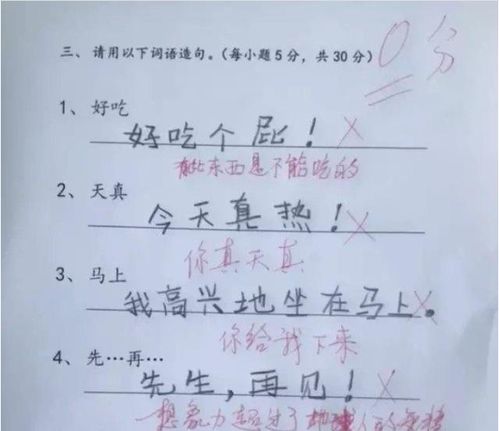 三、请用以下词语造句。(每小题5分，共30分) 0分
1、好吃
好吃个屁！ ×
有些东西是不能吃的
2、天真
今天真热！ ×
你真天真
3、马上
我高兴地坐在马上。 ×
你给我下来
4、先…再…
先生，再见！ ×
想象力超过了地球人的